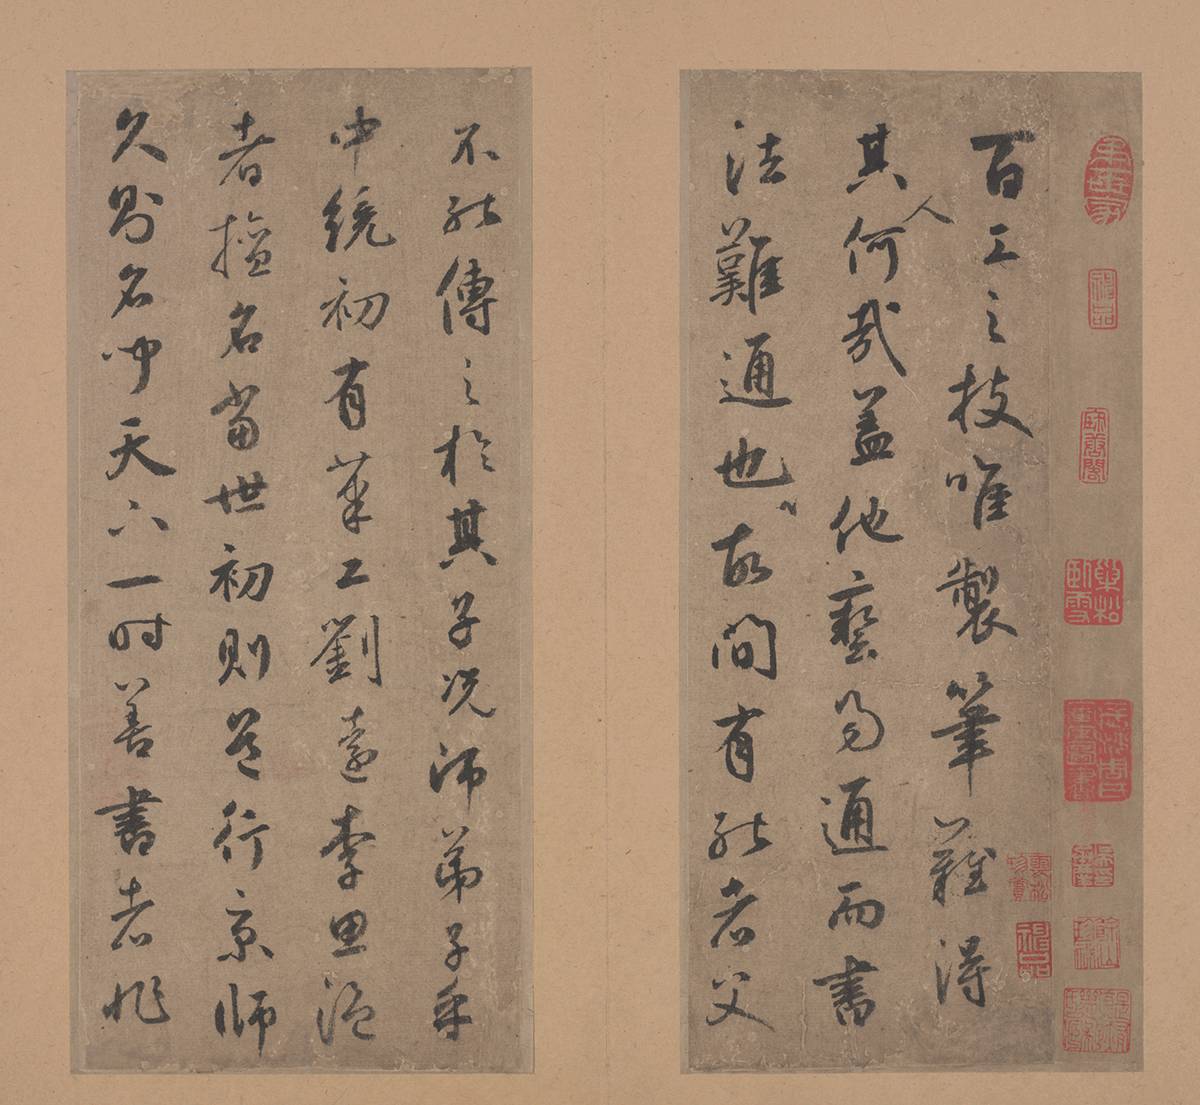 神品
巢松臥雪
百工之技唯製筆難得
其人何哉盖他藝易通而書
法難通也故間有能者父
不能傳之於其子况師弟子乎
中統初有筆工劉遠李思温
者擅名當世初則行京師
久則名聞天下一时善書者非